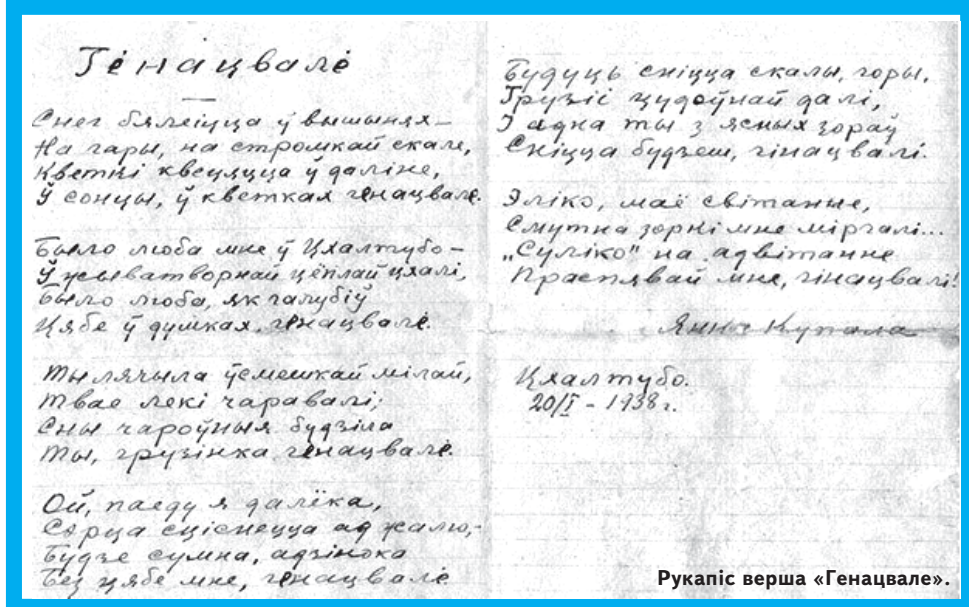 Генацвале
Снег бялеіцца ў вышынях –
На гары, на стромкай скале,
Кветкі квецяцца ў даліне,
Ў сонцы, ў кветках генацвале.
Было люба мне ў Цхалтубо –
Ў жыватворнай цёплай цхалі,
Было люба, як галубіў
Цябе ў душках, генацвале.
Ты лячыла ўсмешкай мілай,
Твае лекі чаравалі;
Сны чароўныя будзіла
Ты, грузінка генацвале.
Ой, паеду я далёка,
Сэрца сціснецца ад жалю,
Будзе сумна, адзінока
Без цябе мне, генацвале
Будуць сніцца скалы, горы,
Грузіі цудоўнай далі,
І адна ты з ясных зораў
Сніцца будзеш, гінацвалі.
Эліко, маё світанне,
Смутна зоркі мне міргалі...
„Суліко" на адвітанне
Праспявай мне, гінацвалі!
Янка Купала
Цхалтубо.
20/I – 1938 г.
Рукапіс верша «Генацвале».